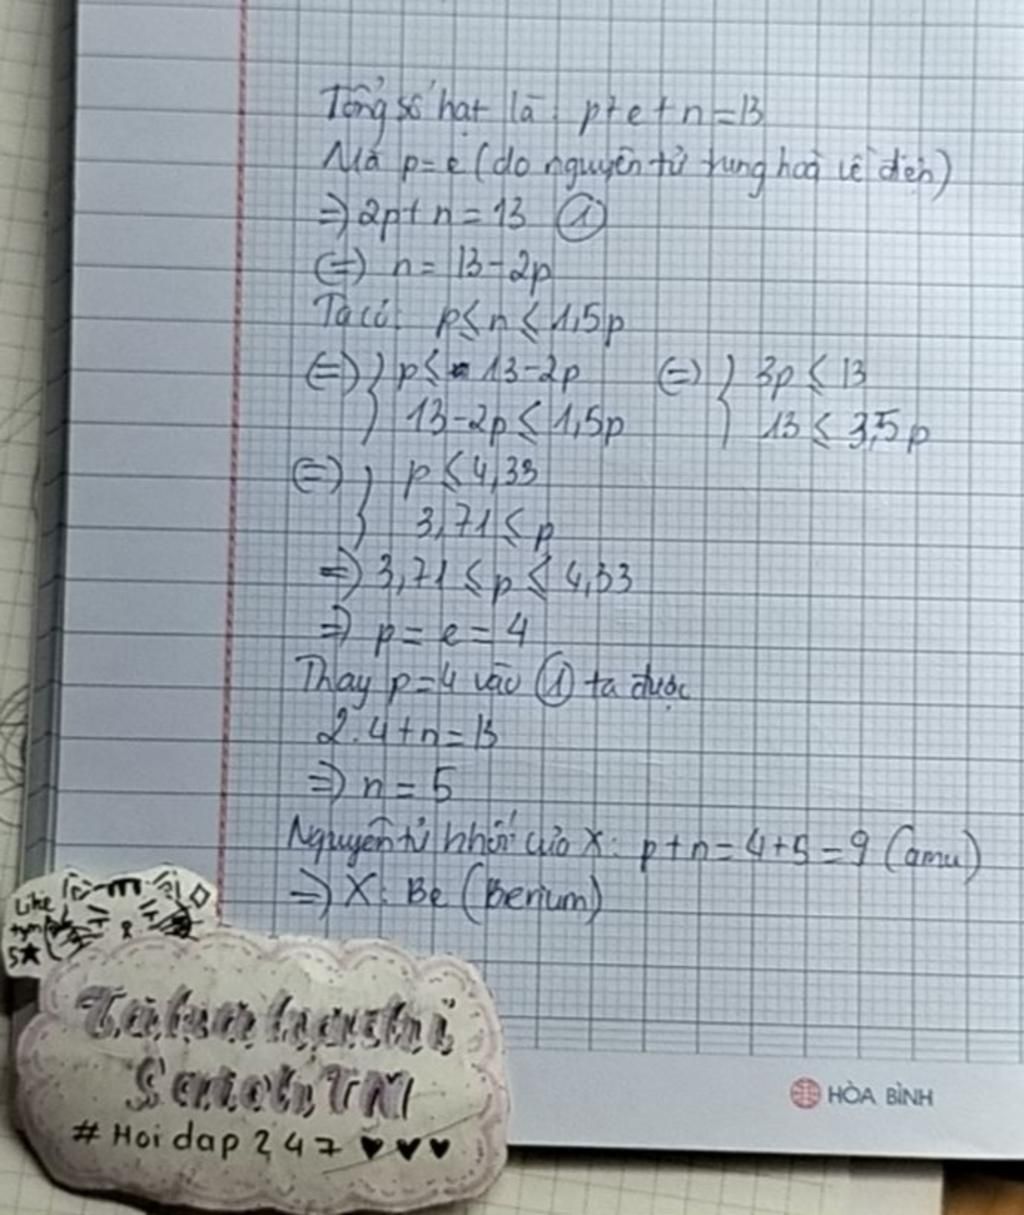 Tổng số hạt là: p+e+n=13
Mà p=e (do nguyên tử trung hoà về điện)
=> 2p+n=13 (1)
(=) n= 13-2p
Ta có: p≤n≤1,5p
(=) } p≤ 13-2p (=) } 3p ≤ 13
} 13-2p ≤ 1,5p } 13 ≤ 3,5p
(=) } p ≤ 4,33
} 3,71 ≤ p
=) 3,71 ≤ p ≤ 4,33
=) p = e = 4
Thay p=4 vào (1) ta được
2.4+n=13
=) n = 5
Nguyên tử khối của X: p+n=4+5=9 (amu)
=) X: Be (Berium)
Like
tym
5★
# Hoi dap 247 ♥♥♥
HÒA BÌNH